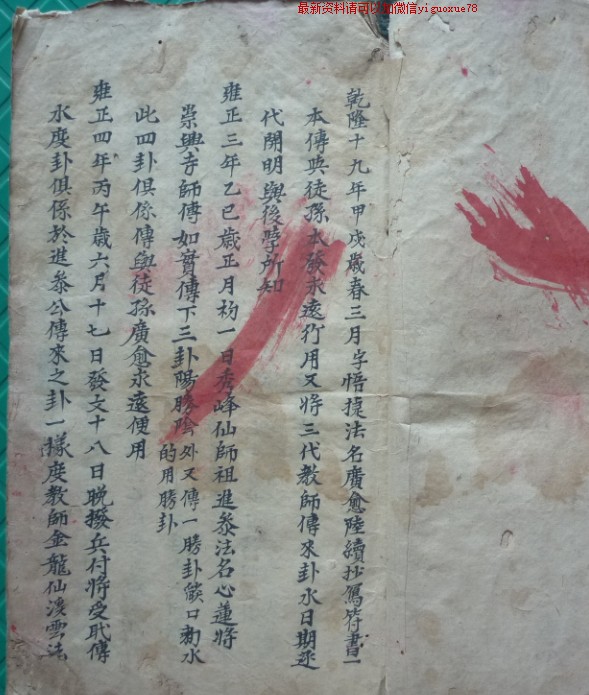 最新资料请可以加微信yiguoxue78
乾隆十九年甲戌歲春三月字悟㨗法名廣愈陸續抄寫符書一
本傳與徒孫本發永遠行用又將三代教師傳來卦水日期逐
代開明與後學所知
雍正三年乙巳歲正月初一日秀峰仙師祖進叅法名心蓮將
崇興寺師傳如實傳下三卦陽勝陰外又傳一勝卦𦦨口勅水
的用勝卦
此四卦俱係傳與徒孫廣愈永遠便用
雍正四年丙午歲六月十七日發文十八日晚撥兵付將受戒傳
水度卦俱係於進叅公傳來之卦一樣度教師金龍仙溪雲法